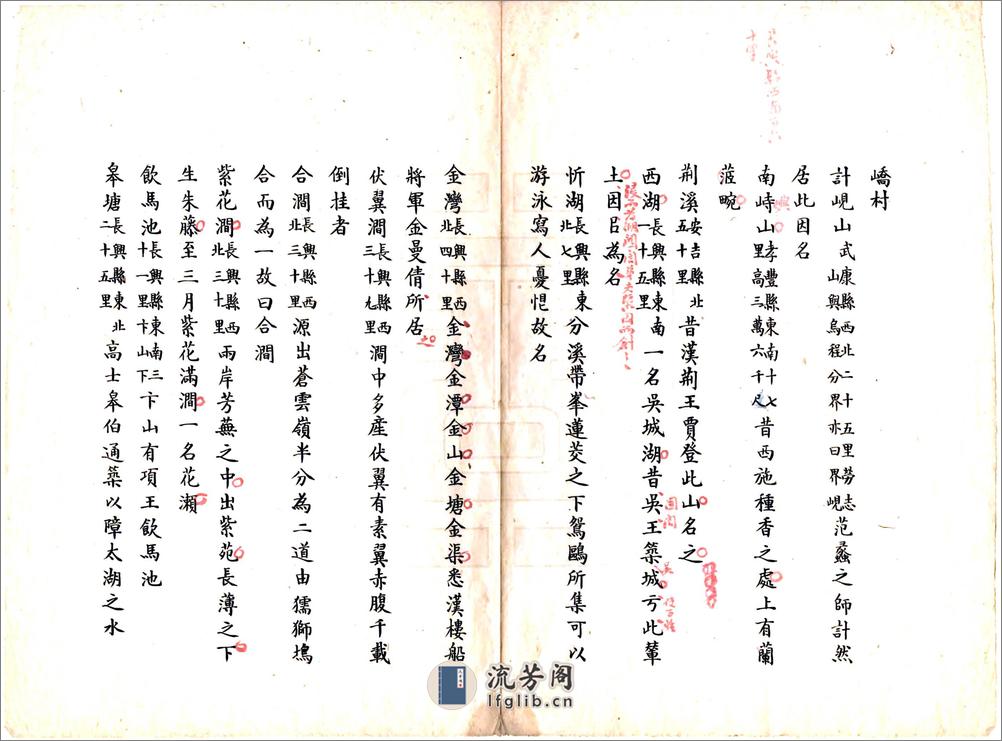 嶠村
計峴山武康縣西北二十五里勞志山與烏程分界亦曰界峴范蠡之師計然
居此因名
南峙山孝豐縣東南十七里高三萬六千尺昔西施種香之處上有蘭
菰畹
荆溪安吉縣北五十里昔漢荆王賈登此山名之
西湖長興縣東南一十五里一名吳城湖昔吳王築城于此輦
土因㠯為名
忻湖長興縣東北七里分溪帶峯蓮茭之下鴛鷗所集可以
游泳寫人憂悒故名
金灣長興縣西北四十里金灣金潭金山金塘金渠悉漢樓船
將軍金曼倩所居
伏翼澗長興縣西三十九里澗中多産伏翼有素翼赤腹千載
倒挂者
合澗長興縣西北三十里源出蒼雲嶺半分為二道由獳獅塢
合而為一故曰合澗
紫花澗長興縣西北三十里兩岸芳蕪之中出紫苑長薄之下
生朱藤至三月紫花滿澗一名花瀨
飲馬池長興縣東南三十一里卞山下卞山有項王飲馬池
皋塘長興縣東北二十五里高士皋伯通築以障太湖之水
流芳阁
lfglib.cn